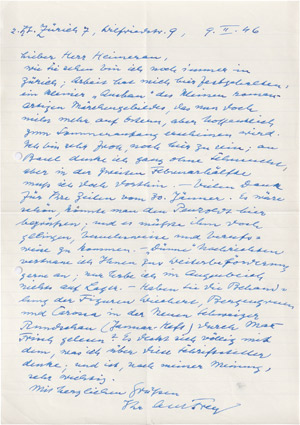 z. Zt. Zürich 7, Wilfriedstr. 9, 9. II. 46
Lieber Herr Heimeran,
wie Sie sehen bin ich noch immer in
Zürich; Arbeit hat mich hier festgehalten,
ein kleiner "Ausbau" des kleinen roman-
artigen Märchengebildes, das nun doch
nicht mehr auf Ostern, aber hoffentlich
zum Sommeranfang erscheinen wird.
Ich bin sehr froh noch hier zu sein; an
Basel denke ich ganz ohne Sehnsucht,
aber in der zweiten Februarhälfte
muss ich doch dorthin. — Vielen Dank
für Ihre Zeilen vom 30. Jänner. Es wäre
schön, könnte man den Penzoldt hier
begrüssen, und es müsste ihm doch
gelingen, Einreise und
zu kommen. — Nachrichen
vertraue ich Ihnen zur Weiterbeförderung
gerne an; nur habe ich im Augenblick
nichts auf Lager. — Haben Sie die Behand-
lung der Figuren Wiechert, Bergengruen
und Carossa in der Neuen Schweizer
Rundschau (Januar-Heft) durch Max
Frisch gelesen? Es deckt sich völlig mit
dem, was ich über diese Schriftsteller
denke; und ist, nach meiner Meinung,
sehr wichtig.
Mit herzlichen Grüssen
Ihr